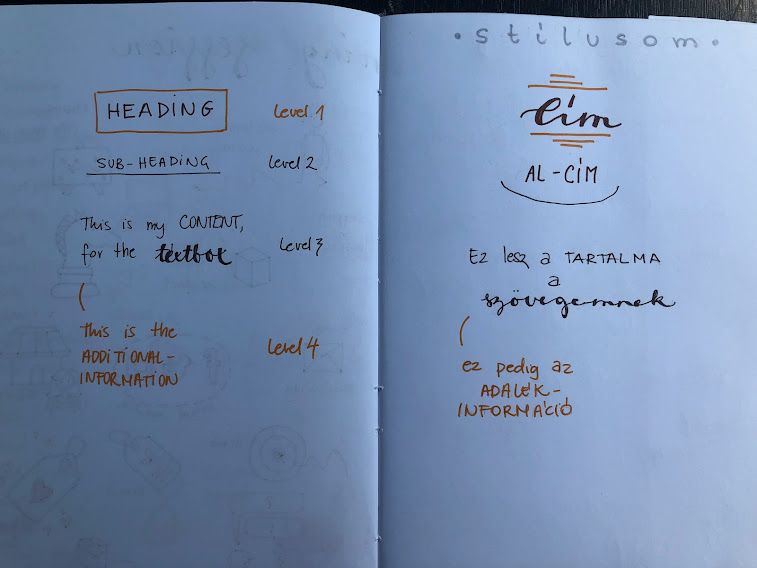 HEADING
Level 1
SUB-HEADING
Level 2
This is my CONTENT,
for the textbox
Level 3
This is the
ADDITIONAL-
INFORMATION
Level 4
• stílusom •
Cím
AL-CÍM
Ez lesz a TARTALMA
a
szövegemnek
ez pedig az
ADALÉK-
INFORMÁCIÓ